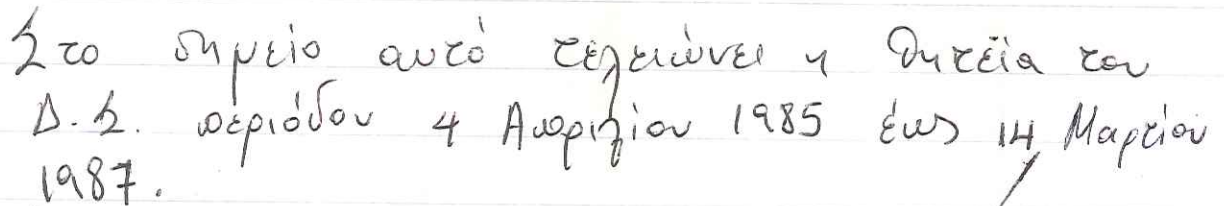 Στο σημείο αυτό τελειώνει η θητεία του
Δ.Σ. περιόδου 4 Απριλίου 1985 έως 14 Μαρτίου
1987.